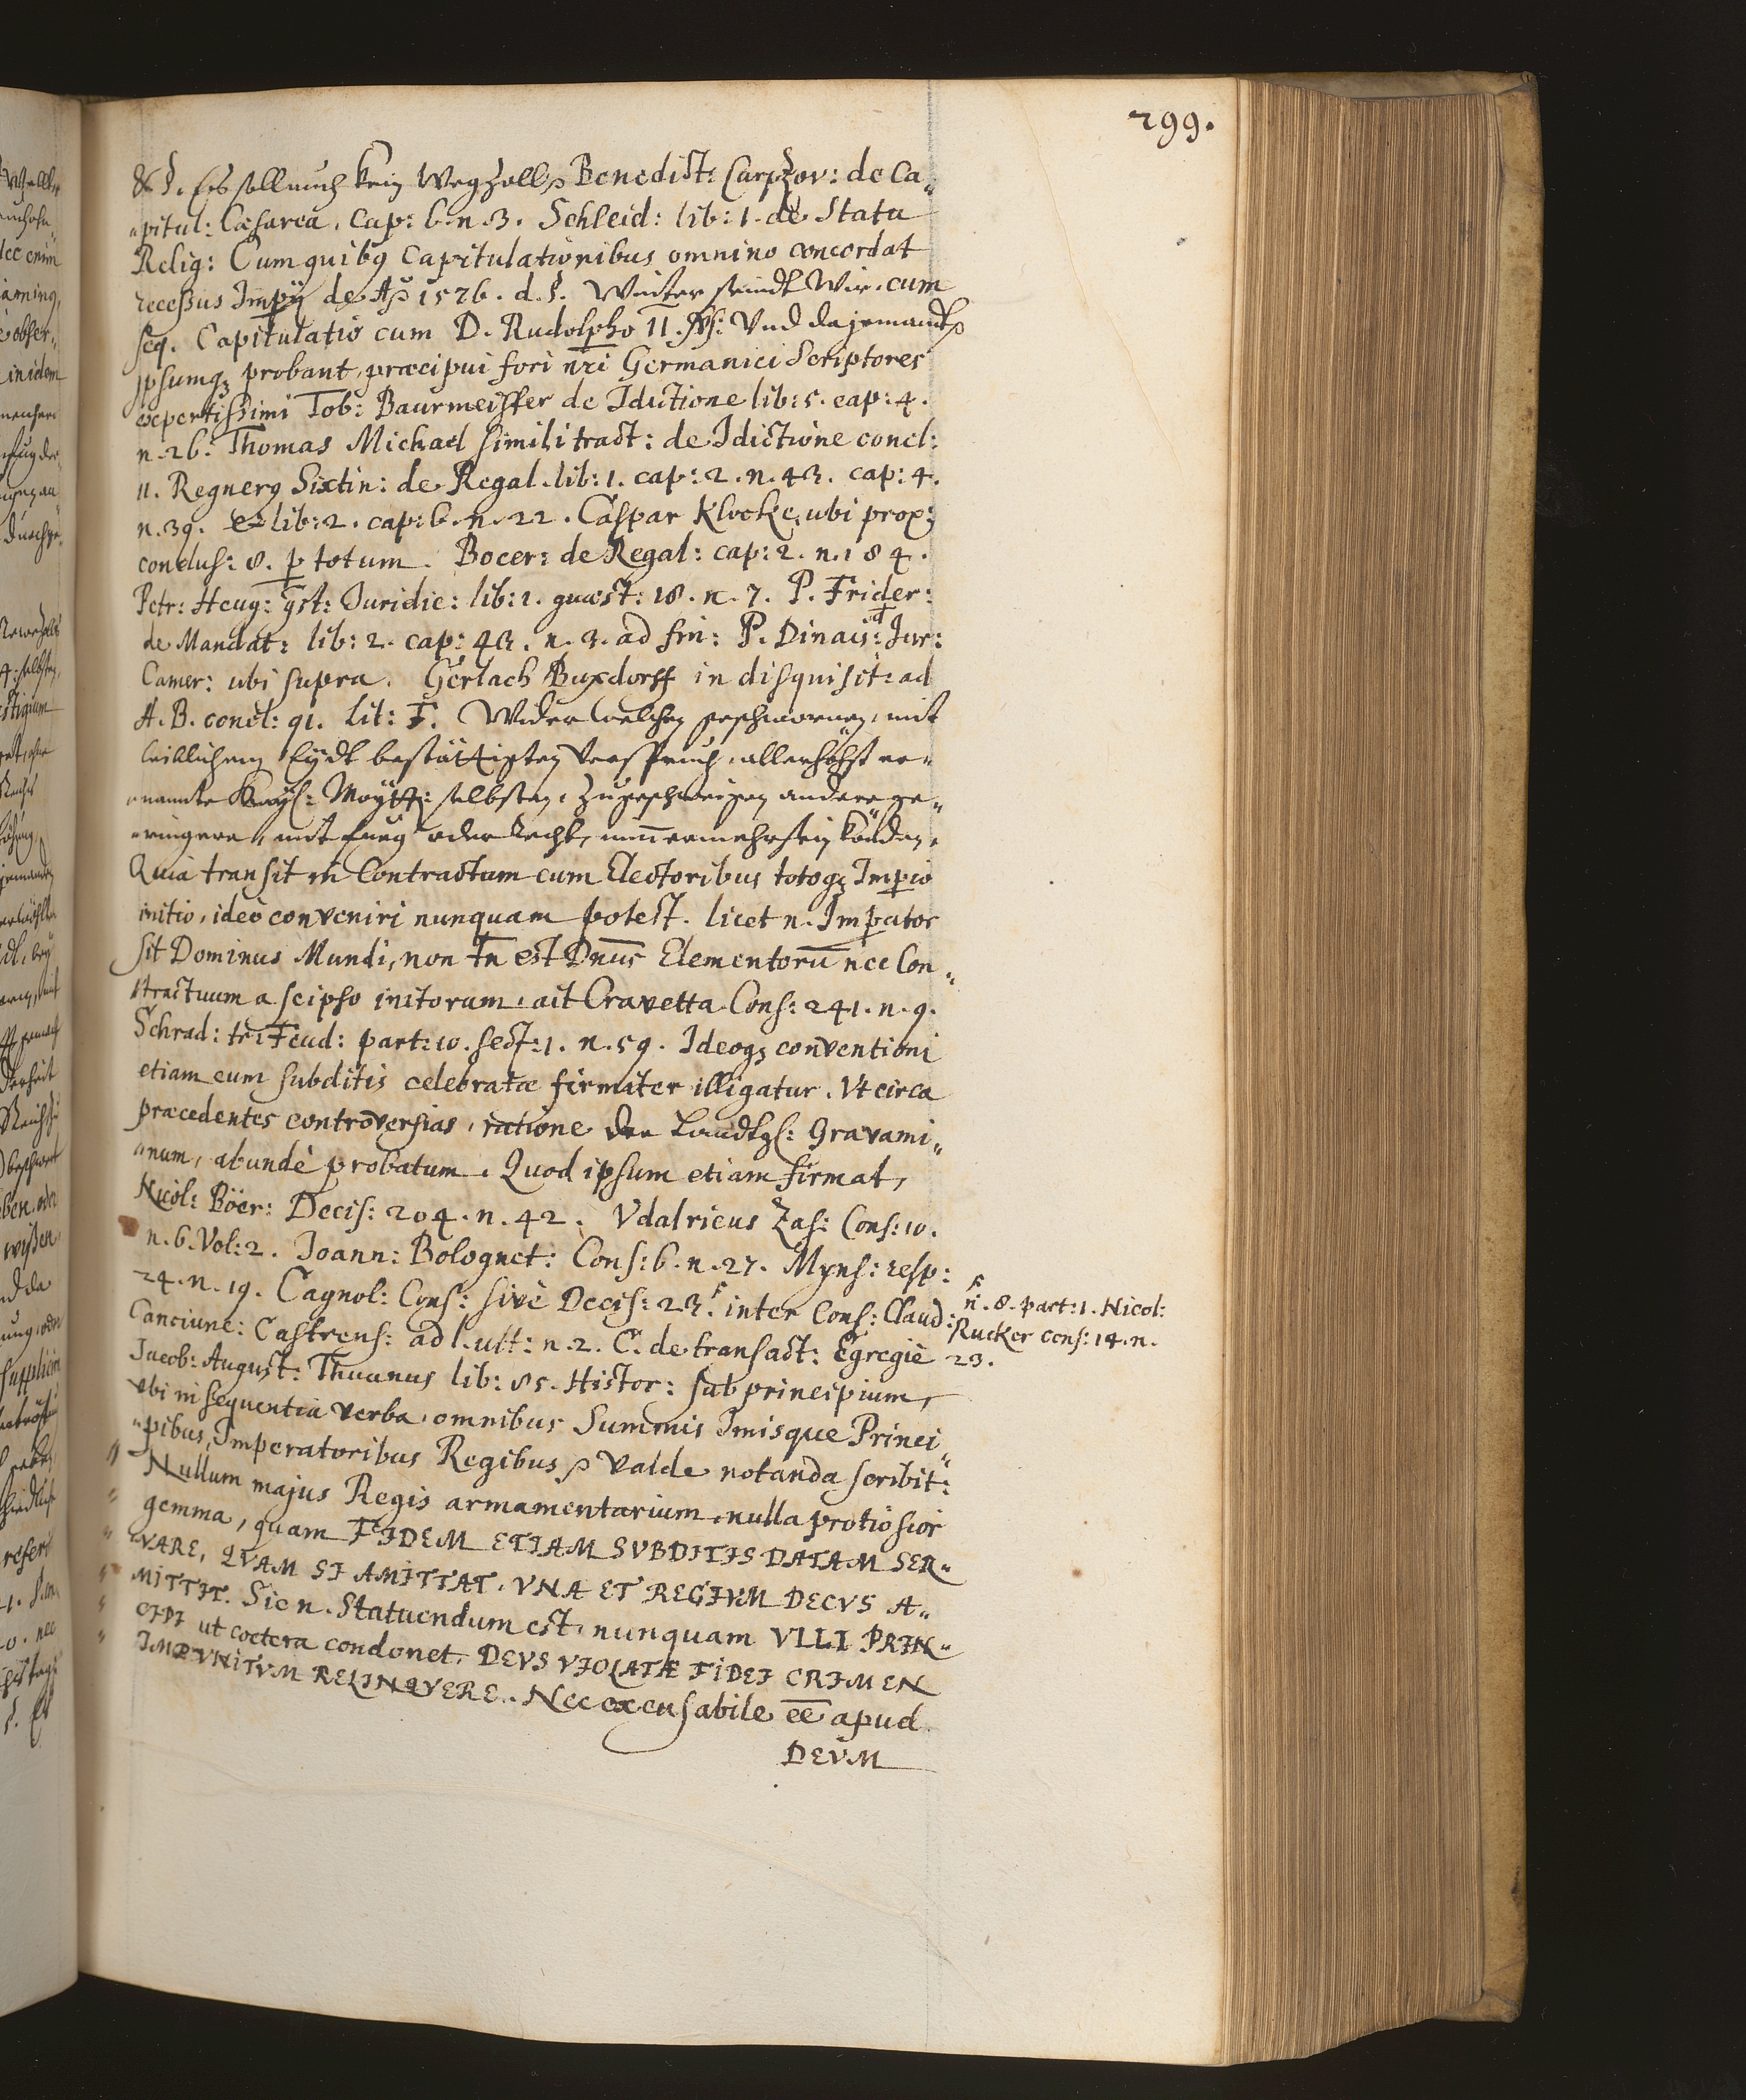 299.
& §. Es soll auch kein Wegzoll Benedict: Carpzov: de Ca„
„pitul: Cæsarea. cap: 6. n. 3. Schleid: lib: 1. de Statu
Relig: Cum quibq Capitulationibus omnino concordat
recessus Impÿ de Aõ 1576. d. §. Weiter seindt Wir. cum
seq. Capitulatio cum D. Rudolpho II. §: Vnd da jemandts
Ipsumqz probant, præcipui fori nr̃i Germanici Scriptores
expertissimi Tob: Baurmeister de Idictione lib: 5. cap: 4.
n. 26. Thomas Michael simili tract: de Idictione concl:
11. Regnerq Sixtin: de Regal. lib: 1. cap: 2. n. 43. cap: 4.
n. 39. et lib: 2. cap: 6. n. 22. Caspar Klocke, ubi prox:
conclus: 8. p totum. Bocer: de Regal: cap: 2. n. 184.
Petr: Heug: qst: Iuridic: lib: 1. quæst: 18. n. 7. P. Frider:
de Mandat: lib: 2. cap: 43. n. 3. ad fin: P. Dinais: Iur:
Camer: ubi supra. Gerlach Buxdorff in disquisit: ad
A. B. concl: 91. lit: F. Wider welchen geschwornen, mit
leiblichem Eydt bestättigten Verspruch, allerhöchst er„
„nannte Kayſ: Maytt: selbsten, zugeschweigen andere ge„
„ringere, mit fueg oder Recht, nim̃ermehr sein könden.
Quia transit in Contractum cum Electoribus totoqz Imperio
initio, ideò conveniri nunquam potest. licet n. Imperator
sit Dominus Mundi, non tñ est Dnũs Elementorũ nec Con„
„tractuum a seipso initorum. ait Cravetta Cons: 241. n. 9.
Schrad: tr: Feud: part: 10. sect: 1. n. 59. Ideoqz conventioni
etiam cum subditis celebratæ firmiter illigatur. Vt circa
præcedentes controversias, ratione der Landtgſ: Gravami„
„num, abundè probatum. Quod ipsum etiam firmat,
Nicol: Böer: Decis: 204. n. 42. Vdalricus Zas: Cons: 10.
n. 6. Vol: 2. Joann: Bolognet: Cons: 6. n. 27. Myns: resp:
24. n. 19. Cagnol: Cons: sivè Decis: 23. inter Cons: Claud:
n. 8. part: 1. Nicol:
Rucker cons: 14. n.
23.
Canciunc: Castrens: ad l. ult: n. 2. C. de transact: Egregiè
Jacob: August: Thuanus lib: 85. Histor: sub principium,
vbi in sequentia verba, omnibus Summis Imisque Princi„
„pibus, Imperatoribus Regibus valde notanda scribit:
" Nullum majus Regis armamentarium, nulla protiosior
" gemma, quam FIDEM ETIAM SVBDITIS DATAM SER„
" VARE, QVAM SI AMITTAT, VNA ET REGIVM DECVS A„
" MITTIT. Sic n. Statuendum est, nunquam VLLI PRIN„
" CIPI ut coetera condonet, DEVS VIOLATÆ FIDEI CRIMEN
" IMPVNITVM RELINQVERE. Nec excusabile eẽ apud
DEVM